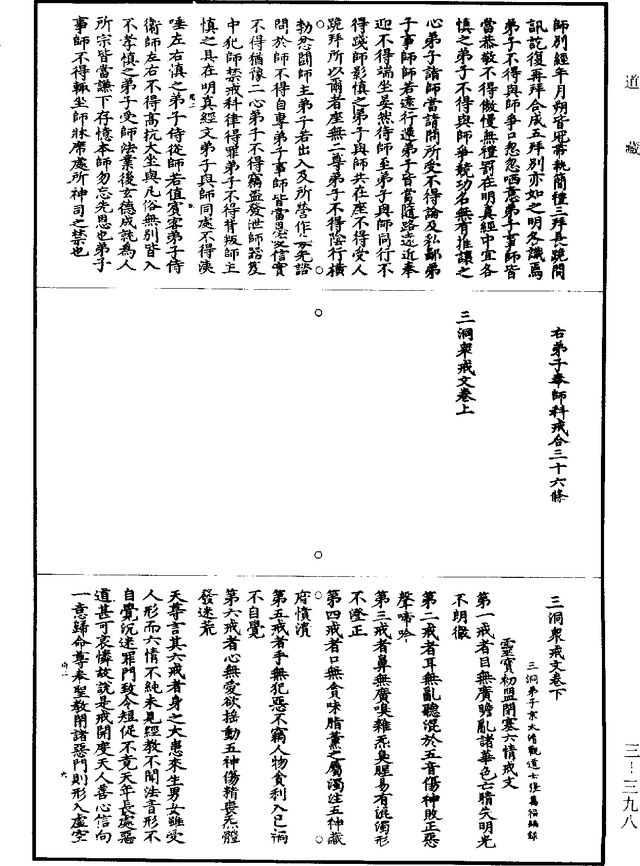 道藏
師別經年月朔皆冠帶執簡禮三拜長跪問
訊訖復再拜合成五拜別亦如之明各識焉
弟子不得與師爭口忽忽哂意弟子事師皆
當恭敬不得傲慢無禮罰在明真經中宜各
慎之弟子不得與師爭競功名無有推讓之
心弟子諸師當請問所受不得論及私鄙弟
子事師師若遠行還弟子皆當隨路遠近奉
迎不得端坐晏然待師至弟子與師同行不
得踐師影慎之弟子與師共在座不得受人
跪拜所以爾者座無二尊弟子不得陰行橫
勃怨閤師主弟子若出入及所營作每先諮
問於師不得自專弟子事師皆當恩從信實
不得猶豫二心弟子不得竊盜發泄師器笈
中犯師禁戒科律得罪弟子不得背叛師主
慎之具在明真經文弟子與師同處不得洟
唾左右滇之弟子侍從師若值賓客弟子侍
衛師左右不得高抗大坐與凡俗無別皆入
不孝慎之弟子受師法業後玄德成就為人
所宗皆當謙下存憶本師勿忘先恩也弟子
事師不得輒坐師牀席處所神司之禁也
右弟子奉師科戒合三十六條
三洞眾戒文卷上
三洞眾戒文卷下
三洞弟子京太清觀道士張萬福編錄
靈寶初盟閉塞六情戒文
第一戒者目無廣瞻亂諸華色亡睛失明光
不朗徹
第二戒者耳無亂聽混於五音傷神敗正惡
聲啼吟
第三戒者鼻無廣嗅雜炁臭腥易有混濁形
不澄正
第四戒者口無貪味脂薰之屬濁注五神藏
府憒潰
第五戒者手無犯惡不竊人物貪利入己禍
不自覺
第六戒者心無愛欲搖動五神傷精喪炁體
發迷荒
天尊言其六戒者身之大患來生男女雖受
人形而六情不純未見經教不聞法音形不
自覺沉迷罪門致令短促不竟天年長處惡
道甚可哀憐故說是戒開度天人善心信向
一意歸命尊奉聖教閉諸惡門則形入虛空
三-三九八